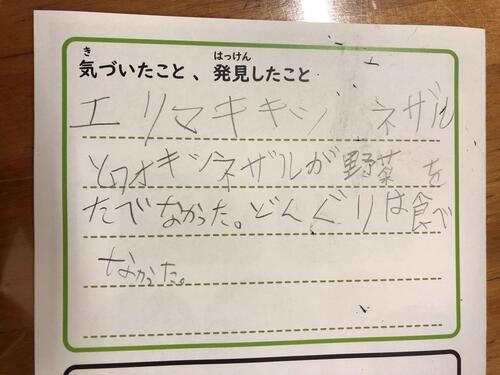 き
はっけん
気づいたこと、発見したこと
エリマキキツネザル
とワオキツネザルが野菜を
たべなかった。どんぐりは食べ
なかった。